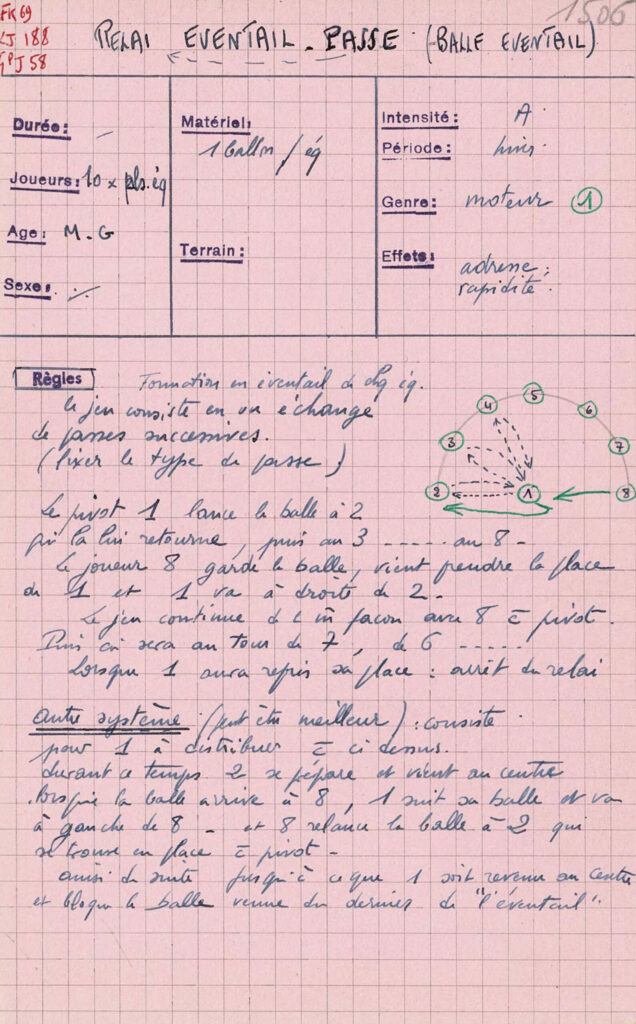 FK 69
LJ 188
GPJ 58
1506
RELAI EVENTAIL - PASSE (BALLE EVENTAIL)
Durée: -
Joueurs: 10 x pls. éq
Age: M. G
Sexe: ./.
Matériel:
1 ballon / éq
Terrain:
Intensité: A
Période:
Genre: moteur 1
Effets: adresse.
rapidité.
Règles
Formation en éventail de chq éq.
Le jeu consiste en un échange
de passes successives.
(fixer le type de passe)
1 2 3 4 5 6 7 8
Le pivot 1 lance la balle à 2
qui la lui retourne, puis au 3 ----- au 8 -
Le joueur 8 garde la balle, vient prendre la place
du 1 et 1 va à droite de 2 -
Le jeu continue d c m̄ façon avec 8 c̄ pivot.
Puis ce sera au tour de 7, de 6 ------
Lorsque 1 aura repris sa place : arrêt du relai
Autre système (peut être meilleur) : consiste
pour 1 à distribuer c̄ ci dessus.
durant ce temps 2 se prépare et vient au centre
lorsque la balle arrive à 8, 1 suit sa balle et va
à gauche de 8 - et 8 relance la balle à 2 qui
se trouve en place c̄ pivot -
ainsi de suite jusqu'à ce que 1 soit revenu au centre
et bloque la balle venue du dernier de "l'éventail".